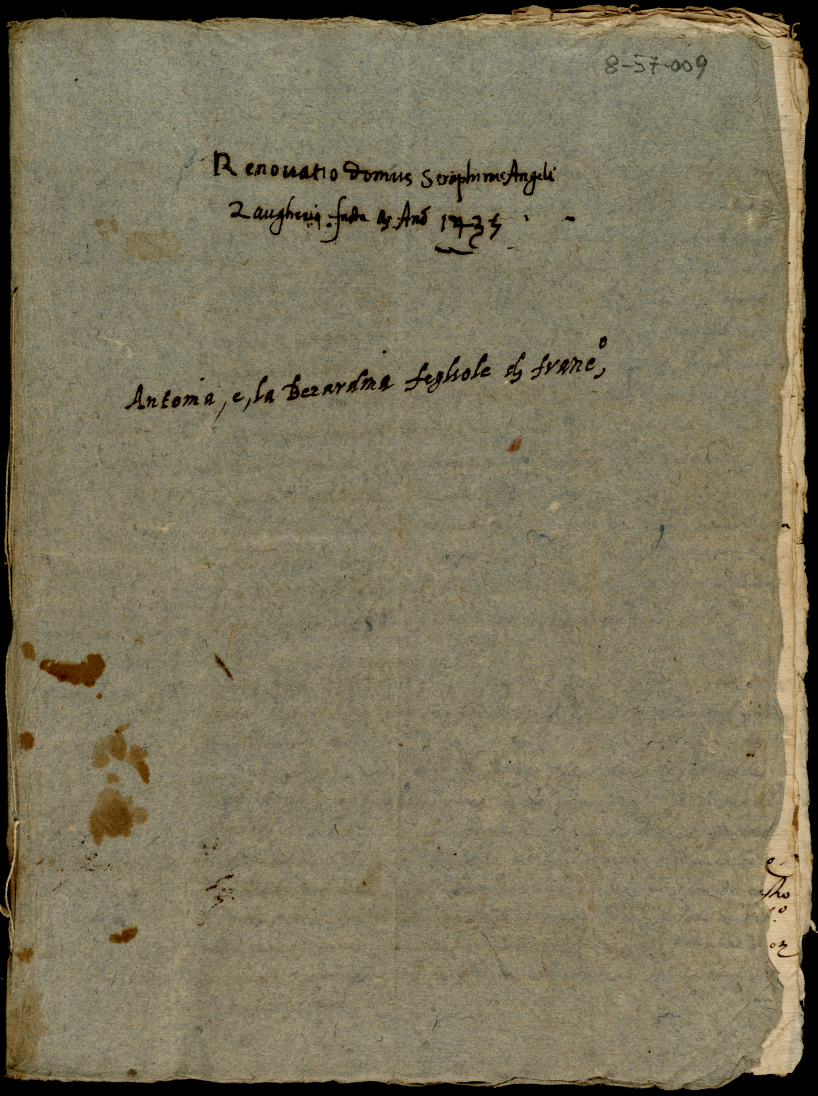 8-57-009
Renovatio domus Seraphinæ Angeli
Zaugheri facta Anō
Antonia, e, la berardina fegliole di franc.o